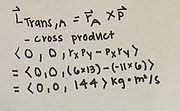 L⃗Trans,A = r⃗A × p⃗
- cross product
<0, 0, rxpy - pxry>
= <0,0,(6×13)-(-11×6)>
= <0, 0, 144> kg·m²/s